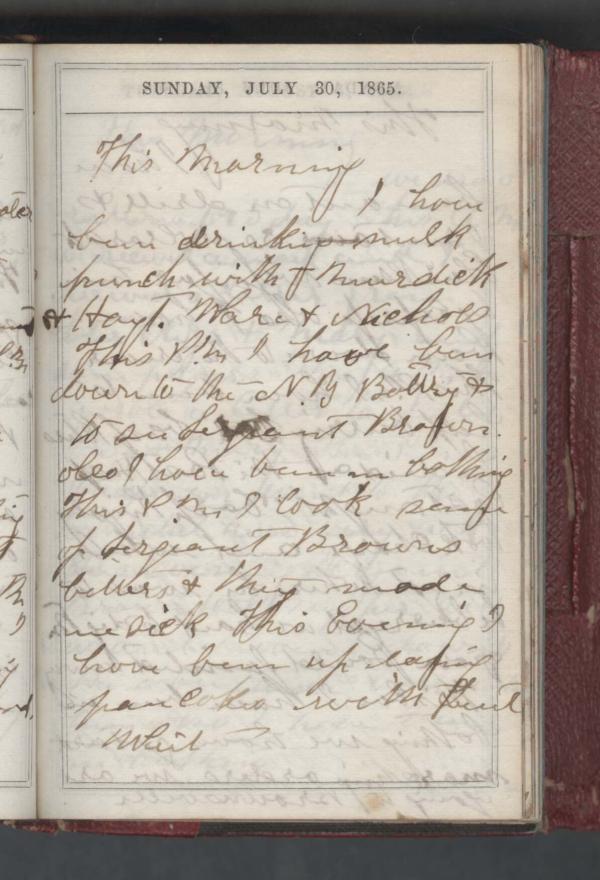 SUNDAY, JULY 30, 1865.
This Morning
I have
ben drinking milk
punch with Murdick
& Hayt. Ware & Nichols
This P.M I have ben
down to the N.Y Battry &
to see Sergeant Brown.
also I have ben in bathing
This P.M. I took some
of Sergeant Browns
bitters & they made
me sick This Evening I
have ben up eating
pancakes with Leut
Whit